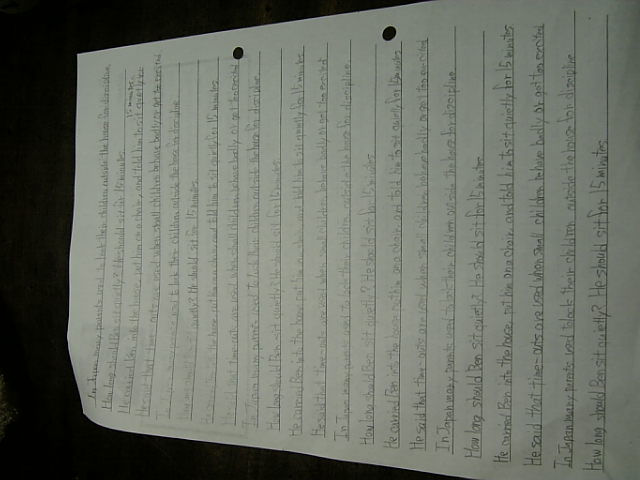 In Japan many parents used to lock their children outside the house for discipline.
How long should Ben sit quietly? He should sit for 15 minutes.
He carried Ben into the house, sat him on a chair, and told him to sit quietly for 15 minutes
He said that time-outs are used when small children behave badly or get too excited
In Japan many parents used to lock their children outside the house for discipline
How long should Ben sit quietly? He should sit for 15 minutes.
He carried Ben into the house, sat him on a chair, and told him to sit quietly for 15 minutes
He said that time-outs are used when small children behave badly or get too excited
In Japan many parents used to lock their children outside the house for discipline
How long should Ben sit quietly? He should sit for 15 minutes
He carried Ben into the house, sat him on a chair, and told him to sit quietly for 15 minutes
He said that time-outs are used when small children behave badly or get too excited
In Japan many parents used to lock their children outside the house for discipline
How long should Ben sit quietly? He should sit for 15 minutes
He carried Ben into the house, sat him on a chair, and told him to sit quietly for 15 minutes
He said that time-outs are used when small children behave badly or get too excited
In Japan many parents used to lock their children outside the house for discipline
How long should Ben sit quietly? He should sit for 15 minutes
He carried Ben into the house, sat him on a chair, and told him to sit quietly for 15 minutes
He said that time-outs are used when small children behave badly or get too excited
In Japan many parents used to lock their children outside the house for discipline
How long should Ben sit quietly? He should sit for 15 minutes